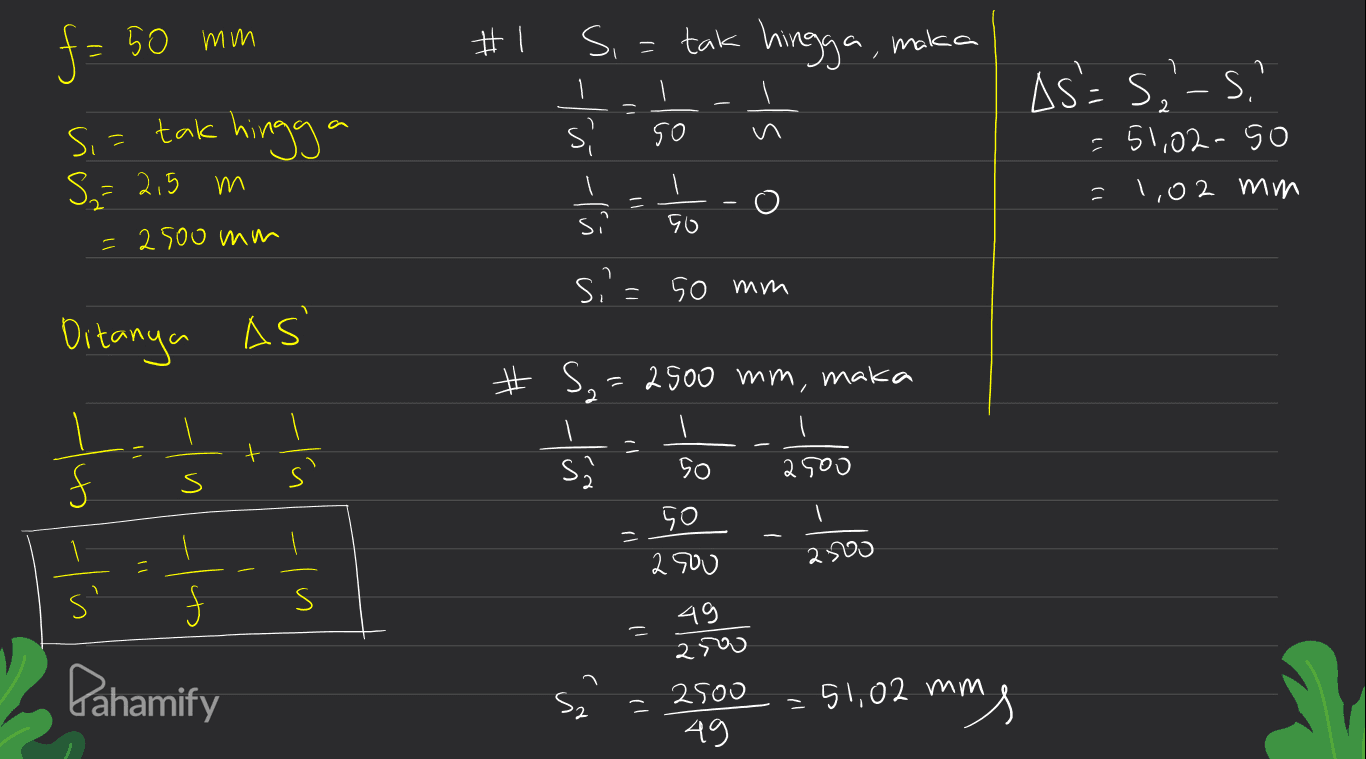 f = 50 mm
S₁ = tak hingga
S₂ = 2,5 m
= 2500 mm
Ditanya ΔS'
1/f = 1/s + 1/s'
1/s' = 1/f - 1/s
Pahamify
#1 S₁ = tak hingga, maka
1/S₁' = 1/50 - 1/~
1/S₁' = 1/50 - 0
S₁' = 50 mm
# S₂ = 2500 mm, maka
1/S₂' = 1/50 - 1/2500
= 50/2500 - 1/2500
= 49/2500
S₂' = 2500/49 = 51,02 mm
ΔS' = S₂' - S₁'
= 51,02 - 50
= 1,02 mm